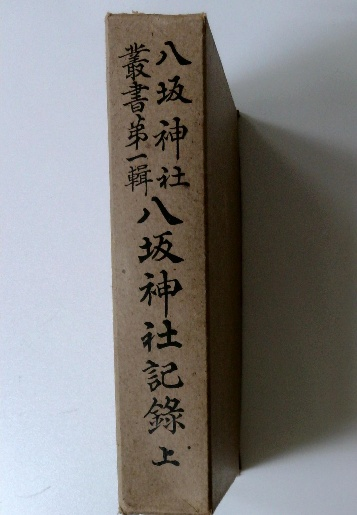 八坂神社
叢書第一輯
八坂神社記錄 上